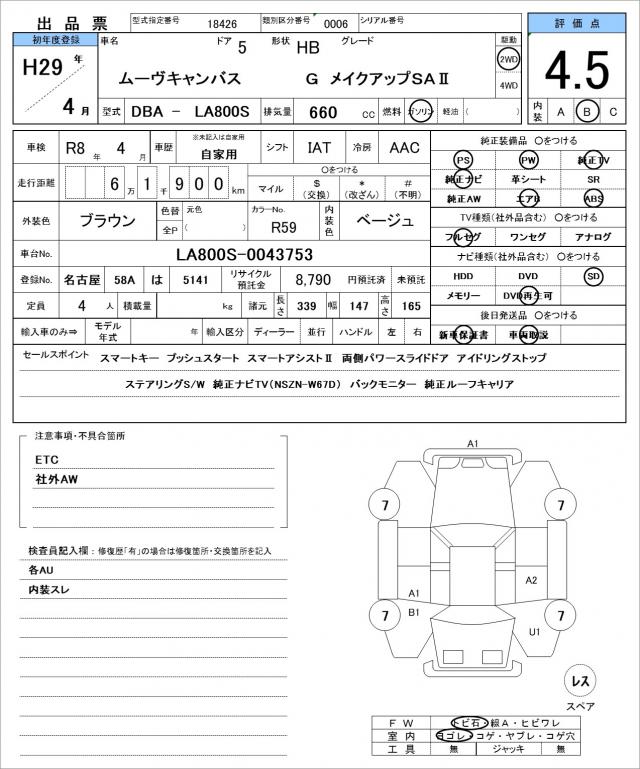 出品票 型式指定番号 18426 類別区分番号 0006 シリアル番号
評価点
4.5
内装 A B C
初年度登録 車名 ドア 5 形状 HB グレード 駆動
H29 年 4 月
ムーヴキャンバス G メイクアップSAⅡ 2WD
4WD
型式 DBA － LA800S 排気量 660 cc 燃料 ガソリン 軽油 ( )
車検 R8 年 4 月 車歴 ※未記入は自家用 自家用 シフト IAT 冷房 AAC
走行距離 6 万 1 千 9 0 0 km 〇をつける
マイル $ (交換) * (改ざん) # (不明)
外装色 ブラウン 色替 元色 カラーNo. R59 内装色 ベージュ
全P ( )
車台No. LA800S-0043753
登録No. 名古屋 58A は 5141 リサイクル預託金 8,790 円預託済 未預託
定員 4 人 積載量 kg 諸元 長さ 339 幅 147 高さ 165
輸入車のみ⇒ モデル年式 年 輸入区分 ディーラー 並行 ハンドル 左 右
純正装備品 〇をつける
PS PW 純正TV
純正ナビ 革シート SR
純正AW エアB ABS
TV種類(社外品含む) 〇をつける
フルセグ ワンセグ アナログ
ナビ種類(社外品含む) 〇をつける
HDD DVD SD
メモリー DVD再生可
後日発送品 〇をつける
新車保証書 車両取説
セールスポイント スマートキー プッシュスタート スマートアシストⅡ 両側パワースライドドア アイドリングストップ
ステアリングS/W 純正ナビTV(NSZN-W67D) バックモニター 純正ルーフキャリア
注意事項・不具合箇所
ETC
社外AW
検査員記入欄：修復歴「有」の場合は修復箇所・交換箇所を記入
各AU
内装スレ
A1
7 7
A1 A2
B1
7 7
U1
レス
スペア
FW トビ石・線A・ヒビワレ
室内 ヨゴレ・コゲ・ヤブレ・コゲ穴
工具 無 ジャッキ 無